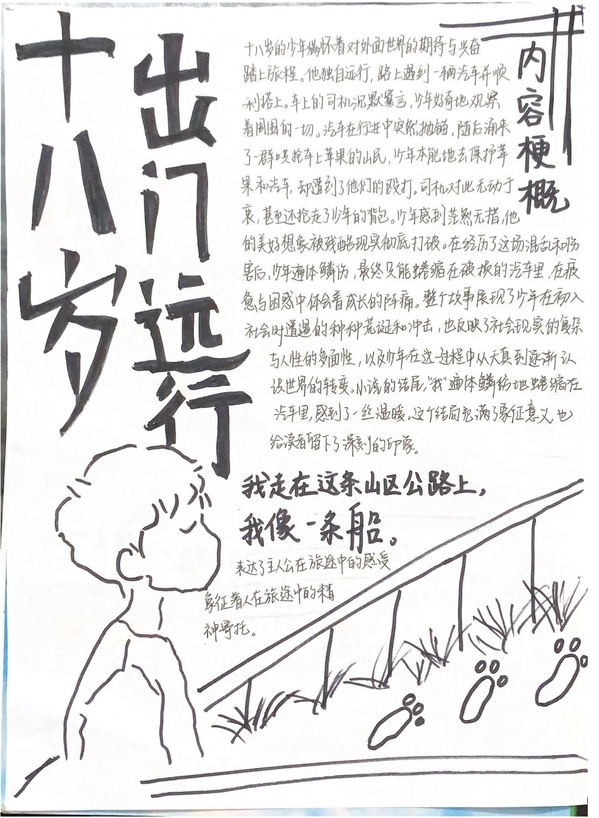 十八岁
出门远行
内容梗概
十八岁的少年满怀着对外面世界的期待与兴奋
踏上旅程。他独自远行，路上遇到一辆汽车并顺
利搭上。车上的司机沉默寡言，少年好奇地观察
着周围的一切。汽车在行进中突然抛锚，随后涌来
了一群哄抢车上苹果的山民，少年本能地去保护苹
果和汽车，却遭到了他们的殴打。司机对此无动于
衷，甚至还抢走了少年的背包。少年感到茫然无措，他
的美好想象被残酷现实彻底打破。在经历了这场混乱和伤
害后，少年遍体鳞伤，最终只能蜷缩在破损的汽车里，在疲
惫与困惑中体会着成长的阵痛。整个故事展现了少年在初入
社会时遭遇的种种荒诞和冲击，也反映了社会现实的复杂
与人性的多面性，以及少年在这一过程中从天真到逐渐认
识世界的转变。小说的结尾，“我”遍体鳞伤地蜷缩在
汽车里，感到了一丝温暖。这个结局充满了象征意义，也
给读者留下了深刻的印象。
我走在这条山区公路上，
我像一条船。
表达了主人公在旅途中的感受
象征着人在旅途中的精
神寄托。